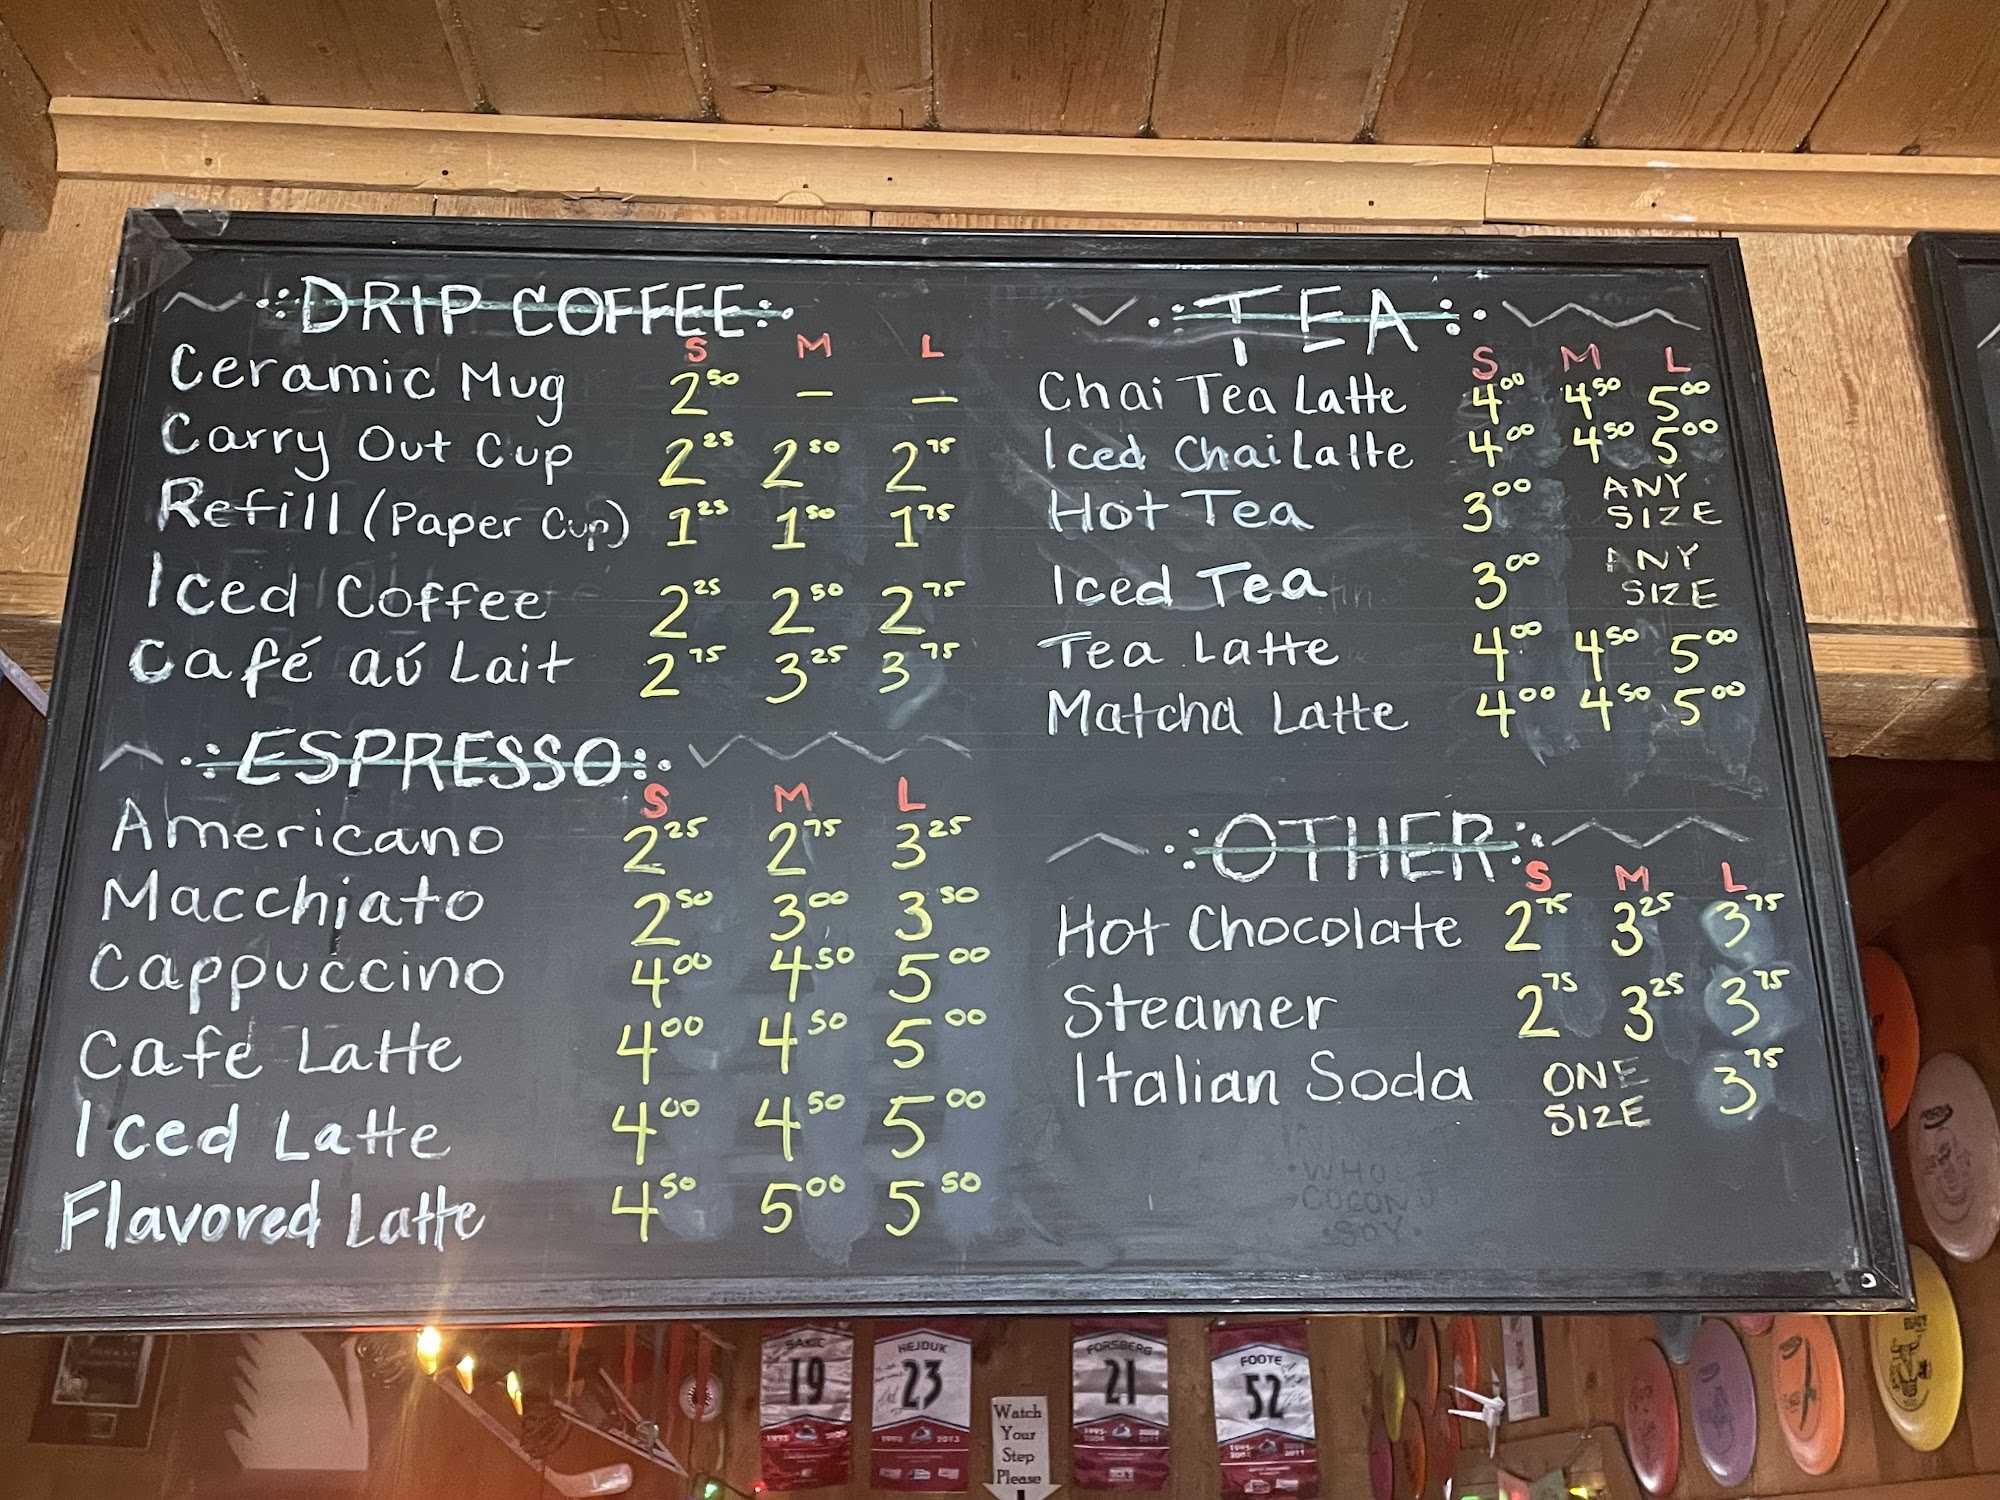 DRIP COFFEE
S M L
Ceramic Mug 2 50 — —
Carry Out Cup 2 25 2 50 2 75
Refill (Paper Cup) 1 25 1 50 1 75
Iced Coffee 2 25 2 50 2 75
Café aú Lait 2 75 3 25 3 75
ESPRESSO
S M L
Americano 2 25 2 75 3 25
Macchiato 2 50 3 00 3 50
Cappuccino 4 00 4 50 5 00
Cafe Latte 4 00 4 50 5 00
Iced Latte 4 00 4 50 5 00
Flavored Latte 4 50 5 00 5 50
TEA
S M L
Chai Tea Latte 4 00 4 50 5 00
Iced Chai Latte 4 00 4 50 5 00
Hot Tea 3 00 ANY SIZE
Iced Tea 3 00 ANY SIZE
Tea Latte 4 00 4 50 5 00
Matcha Latte 4 00 4 50 5 00
OTHER
S M L
Hot Chocolate 2 75 3 25 3 75
Steamer 2 75 3 25 3 75
Italian Soda ONE SIZE 3 75
WHO
COCONU
SOY
SAKIC
19
HEJDUK
23
1998 2013
FORSBERG
21
FOOTE
52
Watch
Your
Step
Please